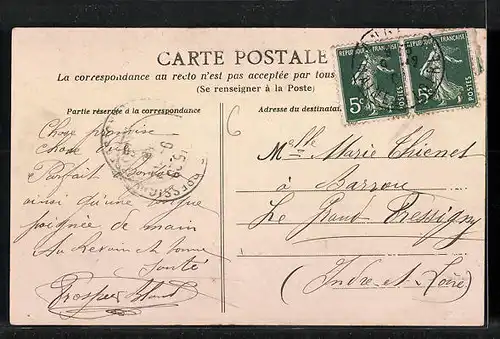 CARTE POSTALE
La correspondance au recto n'est pas acceptée par tous
(Se renseigner à la Poste)
Partie réservée à la correspondance
Adresse du destinataire
REPUBLIQUE FRANÇAISE
5c
REPUBLIQUE FRANÇAISE
5c
6
Chose promise
chose due
Parfait
ainsi qu'une longue
poignée de main
Au Revoir et bonne
Santé
Prosper
Melle Marie Thienet
à Barrou
Le Grand Pressigny
(Indre-et-Loire)